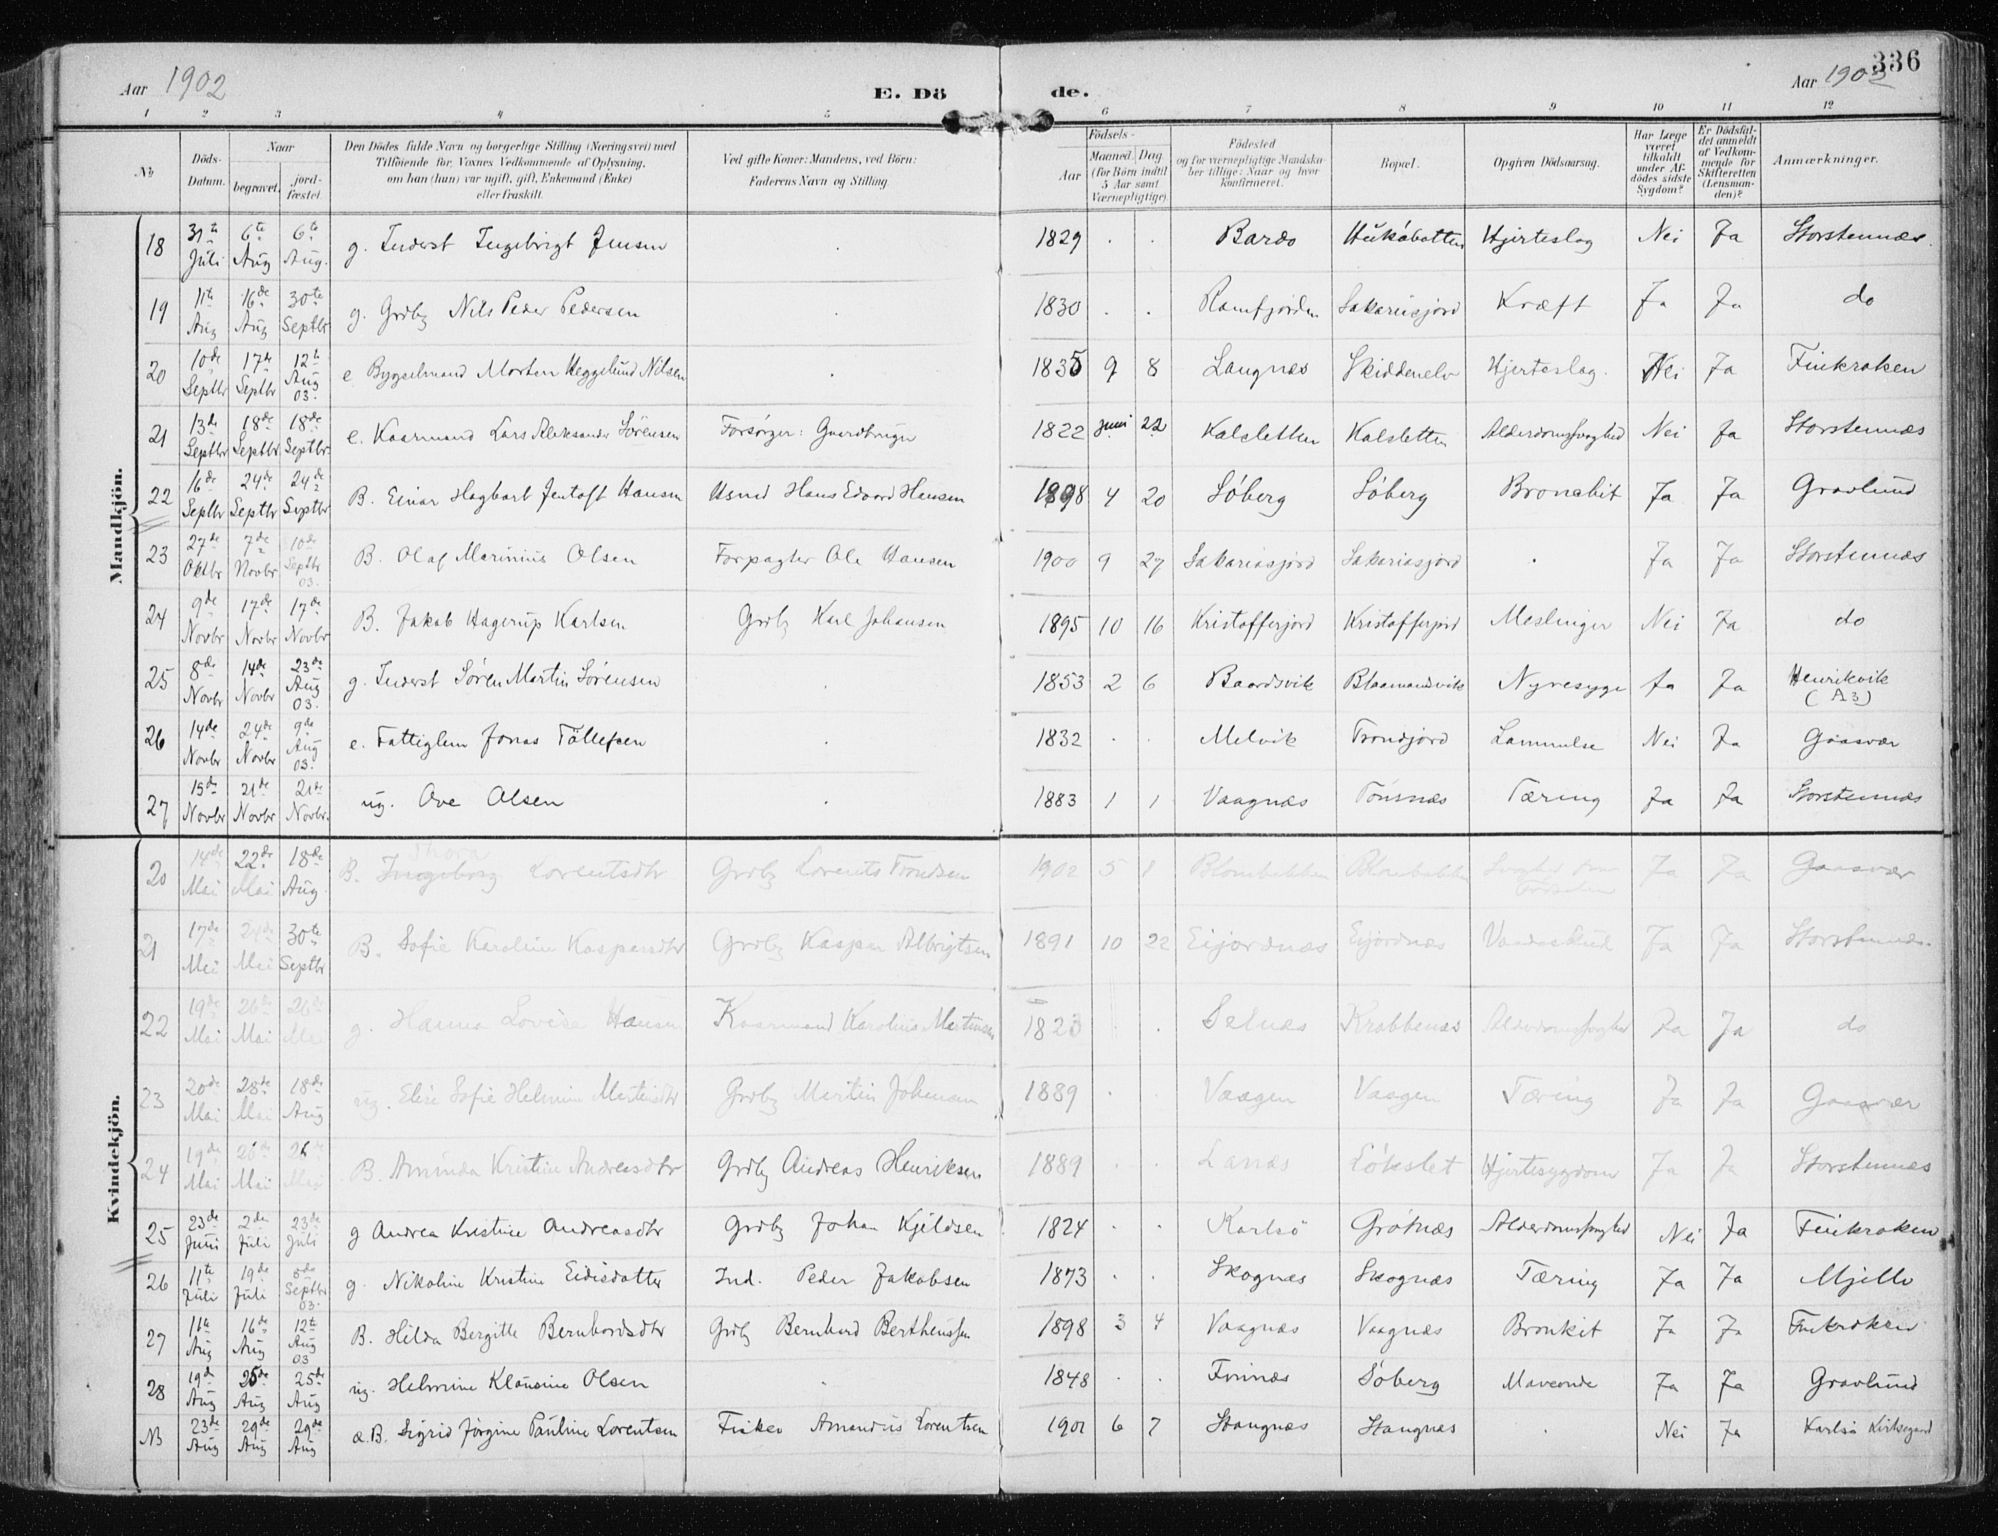 336
Aar 1902
E. Dö
de.
Aar 1902
1 2 3 4 5 6 7 8 9 10 11 12
No
Döds-Datum.
Naar
begravet.
jord-fæstet.
Den Dödes fulde Navn og borgerlige Stilling (Næringsvei) med
Tilföiende for Voxnes Vedkommende af Oplysning,
om han (hun) var ugift, gift, Enkemand (Enke)
eller fraskilt.
Ved gifte Koner: Mandens, ved Börn:
Faderens Navn og Stilling.
Födsels-
Aar
Maaned. Dag
(for Börn indtil
5 Aar samt
Værnepligtige)
Födested
og for værnepligtige Mandska-
ber tillige: Naar og hvor
konfirmeret.
Bopæl.
Opgiven Dödsaarsag.
Har Læge
været
tilkaldt
under Af-
dödes sidste
Sygdom?
Er Dödsfal-
det anmeldt
af Vedkom-
mende for
Skifteretten
(Lensman-
den)?
Anmærkninger.
Mandkjön.
18 31te Juli 6te Aug 6te Aug. g. Inderst Ingebrigt Jensen . 1829 . . Bardo Huköbotten Hjerteslag Nei Ja Storstennæs.
19 11te Aug 16de Aug 30te Septbr g. Grdbg Nils Peder Pedersen . 1830 . . Ramfjorden Sakariasjord Kræft Ja Ja do
20 10de Septbr 17de Septbr 12te Aug 03. e Bygselmand Morten Heggelund Nilsen . 1835 9 8 Langnæs Skiddenelv Hjerteslag. Nei Ja Finkroken
21 13de Septbr 18de Septbr 18de Septbr. e. Kaarmand Lars Aleksander Sörensen Forsörger: Gaardbruger 1822 Juni 22 Kalsletten Kalsletten Alderdomssvaghed Nei Ja Storstennæs
22 16de Septbr 24de Septbr 24de Septbr B. Einar Hagbart Jentoft Hansen Usmd Hans Edvard Hansen 1898 4 20 Söberg Söberg Bronchit Ja Ja Gravlund
23 27de Oktbr 7de Novbr 10de Septbr 03. B. Olaf Marinius Olsen Forpagter Ole Hansen 1900 9 27 Sakariasjord Sakariasjord . Ja Ja Storstennæs
24 9de Novbr 17de Novbr 17de Novbr B. Jakob Hagerup Karlsen Grdbg Karl Johansen 1895 10 16 Kristofferjord Kristofferjord Meslinger Nei Ja do
25 8de Novbr 14de Novbr 23de Aug 03. g. Inderst Sören Martin Sörensen . 1853 2 6 Baardsvik Blaamandsvik Nyresyge Ja Ja Henrikvik (A3)
26 14de Novbr 24de Novbr 9de Aug 03. e. Fattiglem Jonas Tollefsen . 1832 . . Melvik Trondjord Lammelse Nei Ja Gaasvær
27 15de Novbr 21de Novbr 21de Novbr. ug. Ove Olsen . 1883 1 1 Vaagnæs Tönsnæs Tæring Ja Ja Storstennæs
Kvindekjön.
20 14de Mai 22de Mai 18de Aug. B. Ingeborg Thora Lorentsdtr Grdbg Lorents Trondsen 1902 5 1 Ja Ja Gaasvær
21 17de Mai 24de Mai 30te Septbr B. Sofie Karoline Kaspersdtr Grdbg Kasper Albrigtsen 1891 10 22 Eijordnæs Eijordnæs Ja Ja Storstennæs.
22 19de Mai 26de Mai 26de Mai g. Hanna Lovise Hansen Kaarmand Karolius Martinsen . . Selnæs Krabbenæs Alderdomssvaghed Ja Ja do
23 20de Mai 28de Mai 18de Aug ug. Elise Sofie Helmine Martinsdtr Grdbg Martin Johansen 1889 . . Vaagen Vaagen Tæring Ja Ja Gaasvær
24 19de Mai 26de Mai 26 Mai B. Aminda Kristine Andreasdtr Grdbg Andreas Henriksen 1889 . . Lanæs Lökslet Hjertesygdom Ja Ja Storstennæs
25 23de Juni 2den Juli 23de Juli g Andrea Kristine Andreasdtr Grdbg Johan Kjeldsen 1824 . . Karlsö Grötnæs Alderdomssvaghed Nei Ja Finkroken
26 11te Juli 19de Juli 8de Septbr 03. g. Nikoline Kristine Eidisdatter Ind. Peder Jakobsen 1873 . . Skognæs Skognæs Tæring Ja Ja Mjelle
27 11te Aug 16de Aug 12te Aug 03 B. Hilda Bergitte Bernhardsdtr Grdbg Bernhard Bertheussen 1898 3 4 Vaagnæs Vaagnæs Bronkit Ja Ja Finkroken
28 19de Aug 25de Aug 25de Aug ug. Helmine Klausine Olsen . 1848 . . Finnæs Söberg Maveonde Ja Ja Gravlund
NB 23de Aug 29de Aug 29de Aug æ.B. Sigrid Jörgine Pauline Lorentsen Fisker Amandus Lorentsen 1901 6 7 Stangnæs Stangnæs . Nei Ja Karlsö Kirkegaard